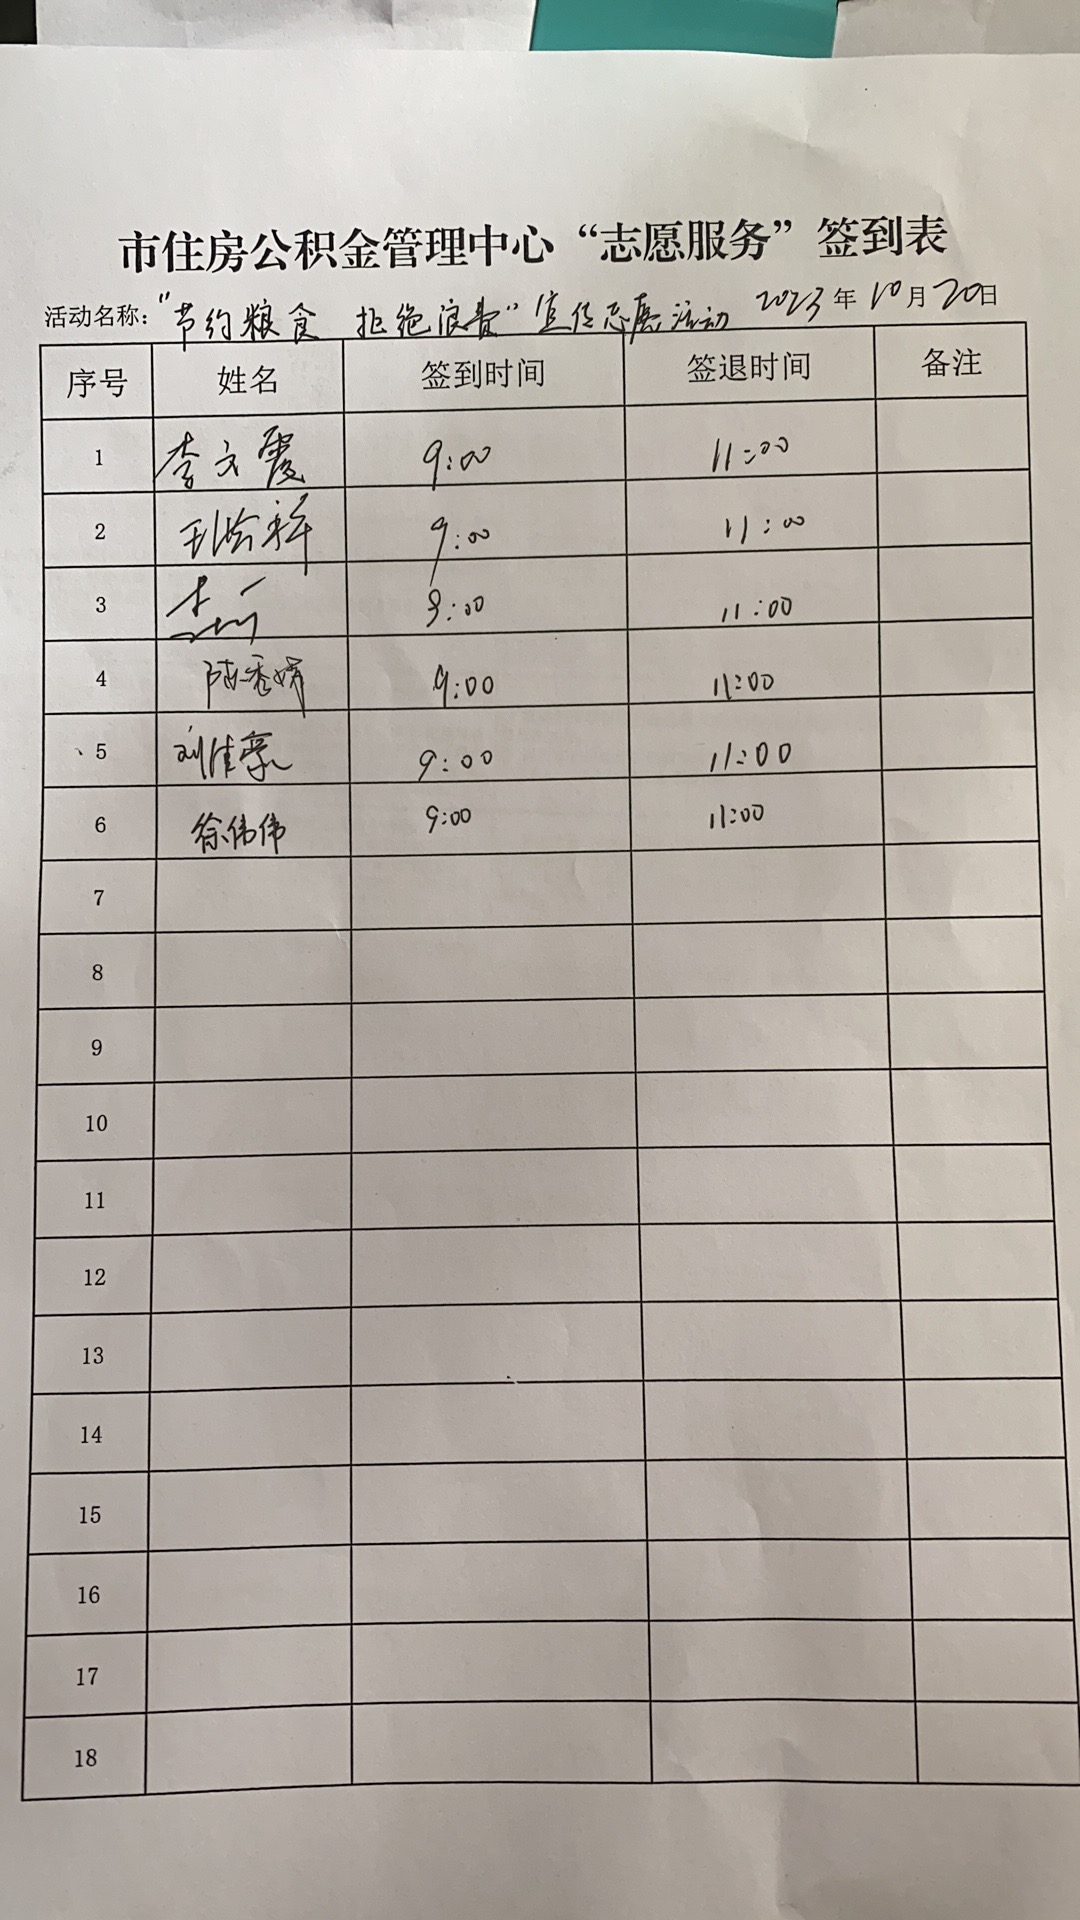 市住房公积金管理中心“志愿服务”签到表
活动名称：“节约粮食 拒绝浪费”宣传志愿活动 2023年10月20日
序号 姓名 签到时间 签退时间 备注
1 李文霞 9:00 11:00
2 9:00 11:00
3 9:00 11:00
4 陈秀娟 9:00 11:00
5 刘佳豪 9:00 11:00
6 徐伟伟 9:00 11:00
7
8
9
10
11
12
13
14
15
16
17
18